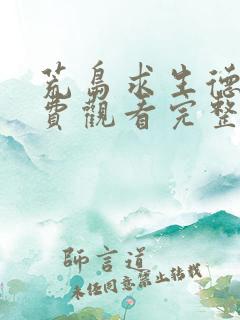 荒島求生德
費觀看完整
師言道
未經同意禁止轉載